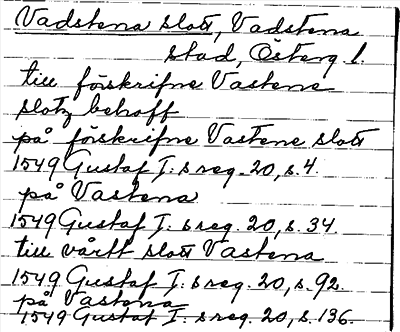 Vadstena slott, Vadstena
stad, Österg l.
till förskrifne Vastene
slotz behoff
på förskrifne Vastene slott
1549 Gustaf I:s reg. 20, s. 4.
på Vastena
1549 Gustaf I:s reg. 20, s. 34.
till vårtt slott Vastena
1549 Gustaf I:s reg. 20, s. 92.
på Vastena
1549 Gustaf I:s reg. 20, s. 136.